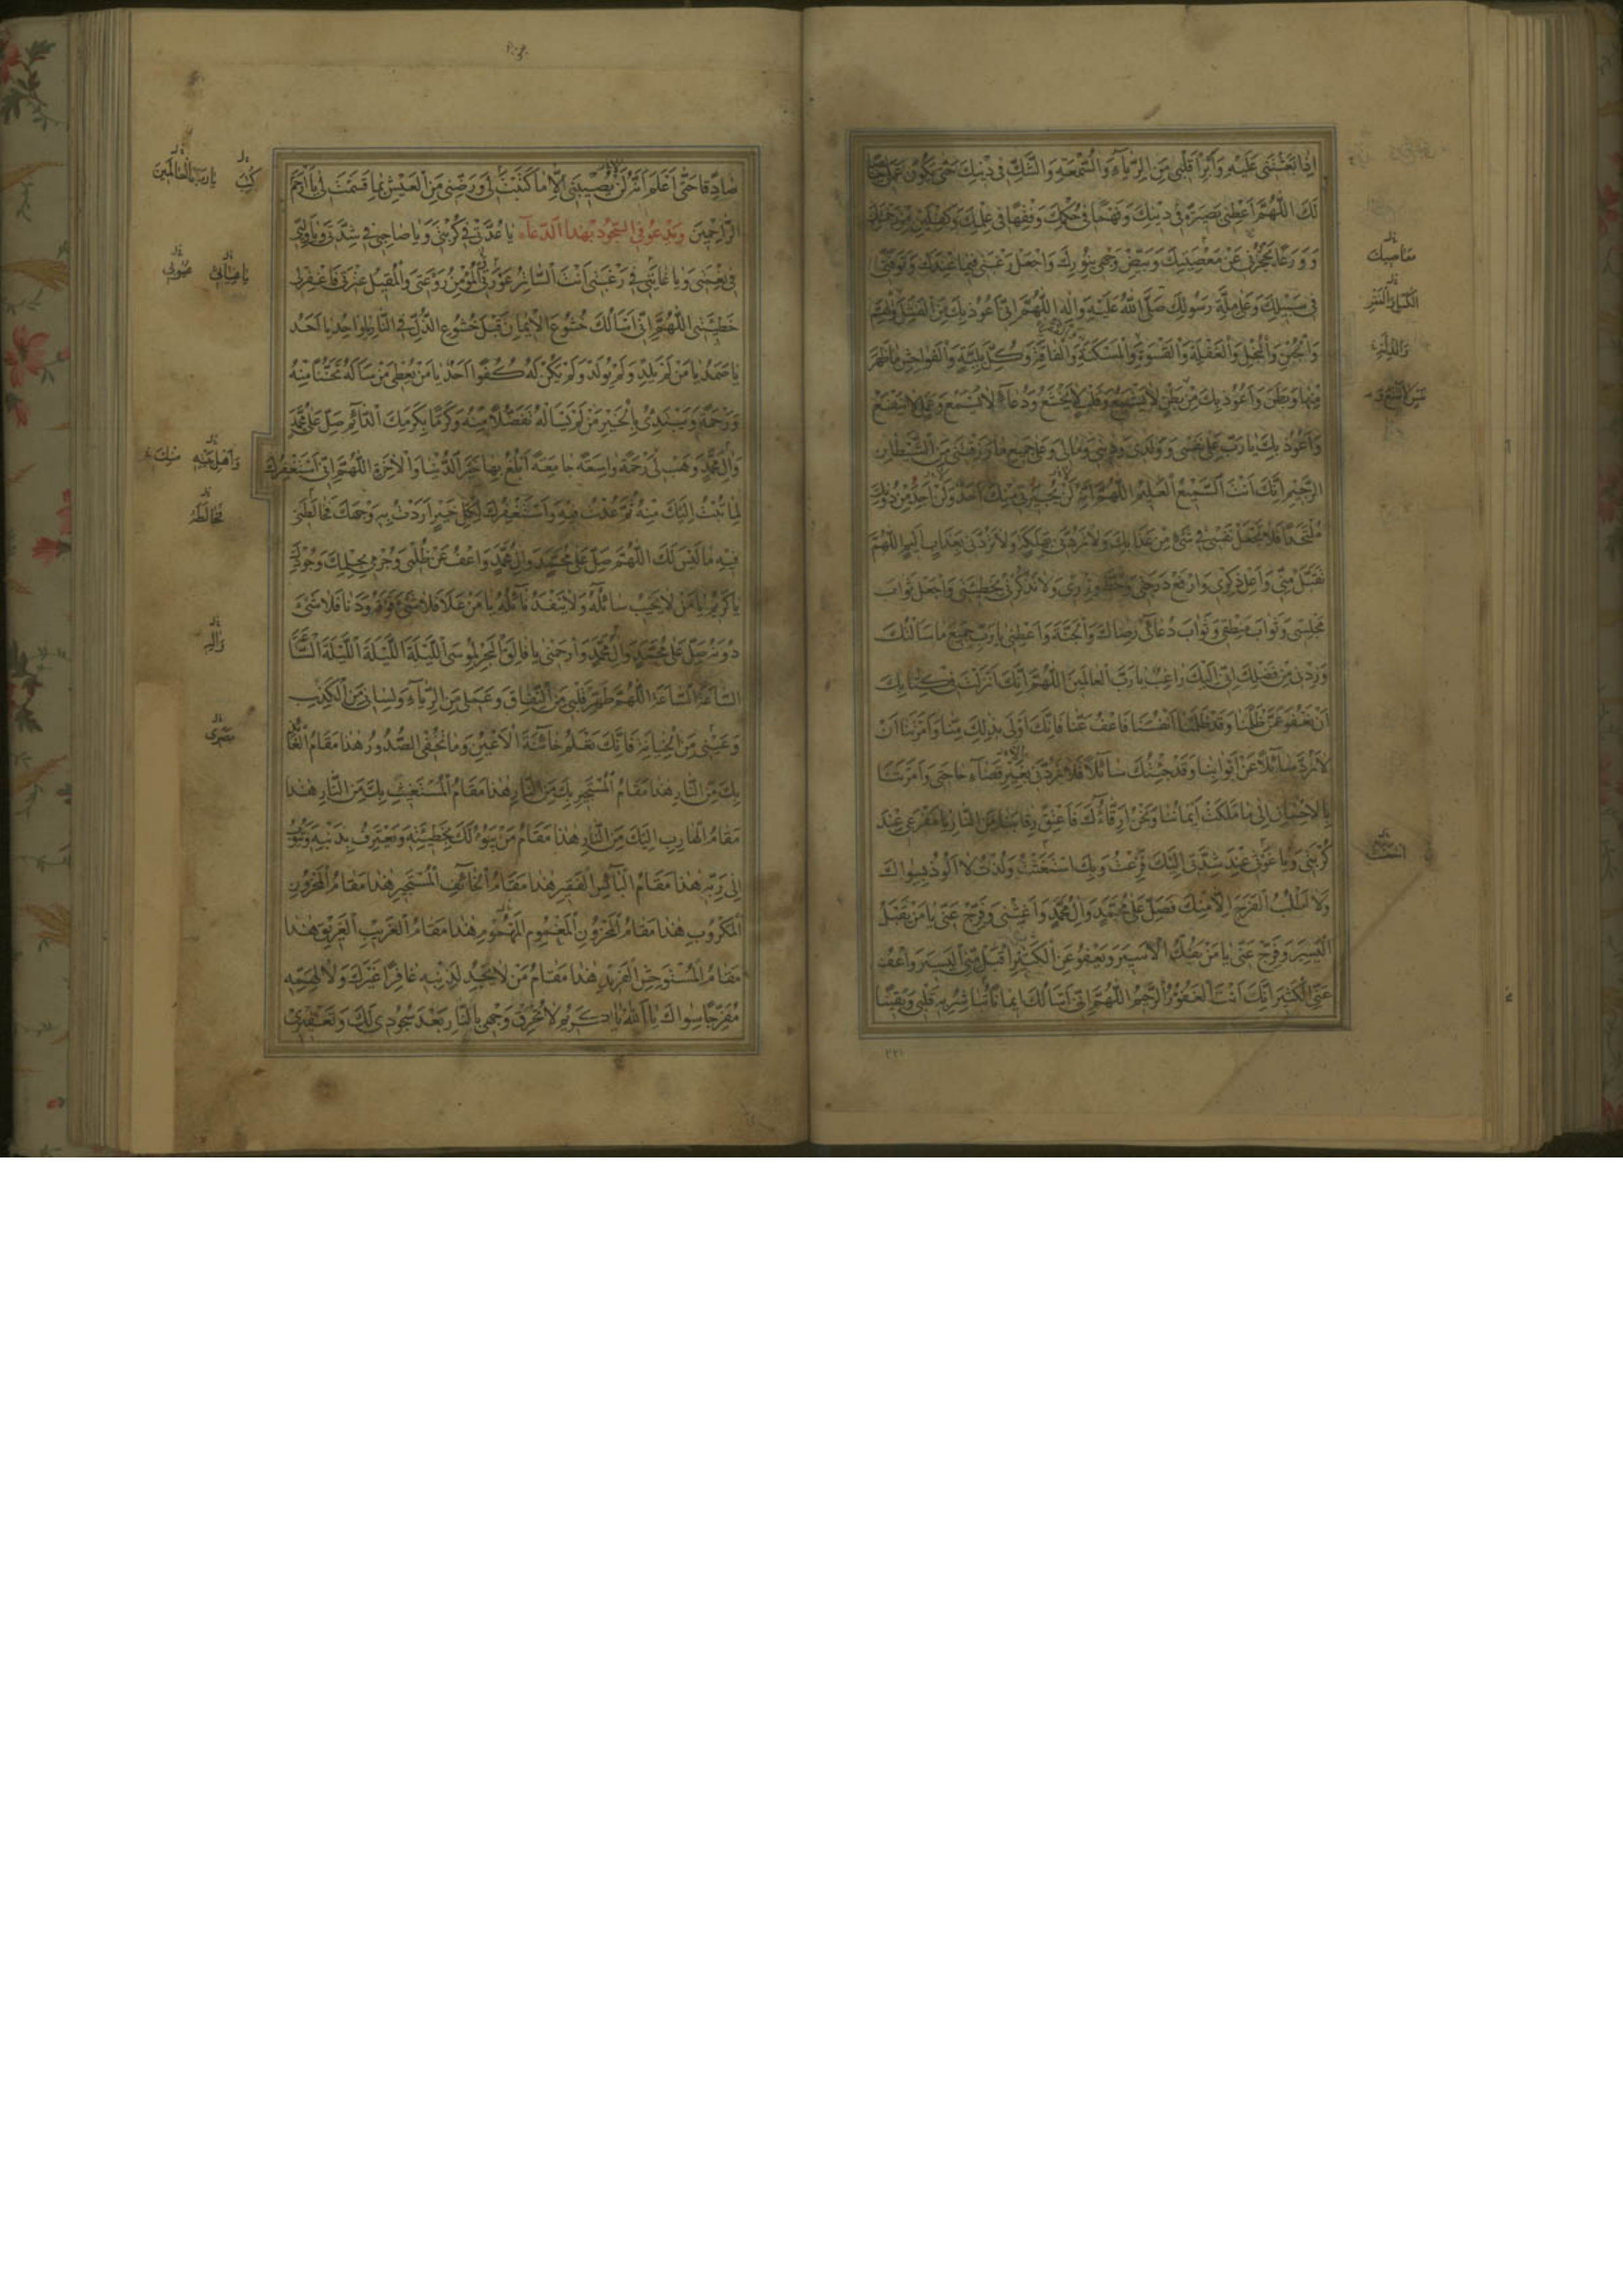 اِذَا بَعَثْتَنِی عَلَیْهِ وَاَبْرِأْ قَلْبِی مِنَ الرِّیَآءِ وَالسُّمْعَةِ وَالشَّكِّ فِی دِینِكَ حَتّٰی یَكُونَ عَمَلِی خَالِصًا
لَكَ اَللّٰهُمَّ اَعْطِنِی بَصِیرَةً فِی دِینِكَ وَفَهْمًا فِی حُكْمِكَ وَفِقْهًا فِی عِلْمِكَ وَكِفْلَیْنِ مِنْ رَحْمَتِكَ
وَوَرَعًا یَحْجُزُنِی عَنْ مَعْصِیَتِكَ وَبَیِّضْ وَجْهِی بِنُورِكَ وَاجْعَلْ رَغْبَتِی فِیمَا عِنْدَكَ وَتَوَفَّنِی
فِی سَبِیلِكَ وَعَلٰی مِلَّةِ رَسُولِكَ صَلَّی اللّٰهُ عَلَیْهِ وَاٰلِهِ اَللّٰهُمَّ اِنِّی اَعُوذُ بِكَ مِنَ الْفَشَلِ وَالْهَمِّ
وَالْجُبْنِ وَالْبُخْلِ وَالْغَفْلَةِ وَالْقَسْوَةِ وَالْمَسْكَنَةِ وَالْفَاقَةِ وَكُلِّ بَلِیَّةٍ وَالْفَوَاحِشِ مَا ظَهَرَ
مِنْهَا وَمَا بَطَنَ وَاَعُوذُ بِكَ مِنْ بَطْنٍ لَا یَشْبَعُ وَقَلْبٍ لَا یَخْشَعُ وَدُعَآءٍ لَا یُسْمَعُ وَعَمَلٍ لَا یَنْفَعُ
وَاَعُوذُ بِكَ یَا رَبِّ عَلٰی نَفْسِی وَوُلْدِی وَدِینِی وَمَالِی وَعَلٰی جَمِیعِ مَا رَزَقْتَنِی مِنَ الشَّیْطَانِ
الرَّجِیمِ اِنَّكَ اَنْتَ السَّمِیعُ الْعَلِیمُ اَللّٰهُمَّ اِنَّهُ لَنْ یُجِیرَنِی مِنْكَ اَحَدٌ وَلَنْ اَجِدَ مِنْ دُونِكَ
مُلْتَحَدًا فَلَا تَجْعَلْ نَفْسِی فِی شَیْءٍ مِنْ عَذَابِكَ وَلَا تَرُدَّنِی بِهَلَكَةٍ وَلَا تَرُدَّنِی بِعَذَابٍ اَلِیمٍ اَللّٰهُمَّ
تَقَبَّلْ مِنِّی وَاَعْلِ ذِكْرِی وَارْفَعْ دَرَجَتِی وَحُطَّ وِزْرِی وَلَا تَذْكُرْنِی بِخَطِیئَتِی وَاجْعَلْ ثَوَابَ
مَجْلِسِی وَثَوَابَ مَنْطِقِی وَثَوَابَ دُعَآئِی رِضَاكَ وَالْجَنَّةَ وَاَعْطِنِی یَا رَبِّ جَمِیعَ مَا سَاَلْتُكَ
وَزِدْنِی مِنْ فَضْلِكَ اِنِّی اِلَیْكَ رَاغِبٌ یَا رَبَّ الْعَالَمِینَ اَللّٰهُمَّ اِنَّكَ اَنْزَلْتَ فِی كِتَابِكَ
اَنْ نَعْفُوَ عَمَّنْ ظَلَمَنَا وَقَدْ ظَلَمْنَا اَنْفُسَنَا فَاعْفُ عَنَّا فَاِنَّكَ اَوْلٰی بِذٰلِكَ مِنَّا وَاَمَرْتَنَا اَنْ
لَا نَرُدَّ سَآئِلًا عَنْ اَبْوَابِنَا وَقَدْ جِئْتُكَ سَآئِلًا فَلَا تَرُدَّنِی بِغَیْرِ قَضَآءِ حَاجَتِی وَاَمَرْتَنَا
بِالْاِحْسَانِ اِلٰی مَا مَلَكَتْ اَیْمَانُنَا وَنَحْنُ اَرِقَّاؤُكَ فَاَعْتِقْ رِقَابَنَا مِنَ النَّارِ یَا مَفْزَعِی عِنْدَ
كُرْبَتِی وَیَا غَوْثِی عِنْدَ شِدَّتِی اِلَیْكَ فَزِعْتُ وَبِكَ اسْتَغَثْتُ وَلُذْتُ لَا اَلُوذُ بِسِوَاكَ
وَلَا اَطْلُبُ الْفَرَجَ اِلَّا مِنْكَ فَصَلِّ عَلٰی مُحَمَّدٍ وَاٰلِ مُحَمَّدٍ وَاَغِثْنِی وَفَرِّجْ عَنِّی یَا مَنْ یَقْبَلُ
الْیَسِیرَ وَفَرِّجْ عَنِّی یَا مَنْ یَفُكُّ الْاَسِیرَ وَیَعْفُو عَنِ الْكَثِیرِ اِقْبَلْ مِنِّی الْیَسِیرَ وَاعْفُ
عَنِّی الْكَثِیرَ اِنَّكَ اَنْتَ الْغَفُورُ الرَّحِیمُ اَللّٰهُمَّ اِنِّی اَسْاَلُكَ اِیمَانًا تُبَاشِرُ بِهِ قَلْبِی وَیَقِینًا
مَعَاصِیكَ
الْكَسَلِ وَالْفَشَلِ
وَالذِّلَّةِ
اسْتَغَثْتُ
٢٢١
صَادِقًا حَتّٰی اَعْلَمَ اَنَّهُ لَنْ یُصِیبَنِی اِلَّا مَا كَتَبْتَ لِی وَرَضِّنِی مِنَ الْعَیْشِ بِمَا قَسَمْتَ لِی یَا اَرْحَمَ
الرَّاحِمِینَ وَیَدْعُو فِی السُّجُودِ بِهٰذَا الدُّعَآءِ یَا عُدَّتِی فِی كُرْبَتِی وَیَا صَاحِبِی فِی شِدَّتِی وَیَا وَلِیِّی
فِی نِعْمَتِی وَیَا غَایَتِی فِی رَغْبَتِی اَنْتَ السَّاتِرُ عَوْرَتِی وَالْمُؤْمِنُ رَوْعَتِی وَالْمُقِیلُ عَثْرَتِی فَاغْفِرْ لِی
خَطِیئَتِی اَللّٰهُمَّ اِنِّی اَسْاَلُكَ خُشُوعَ الْاِیمَانِ قَبْلَ خُشُوعِ الذُّلِّ فِی النَّارِ یَا وَاحِدُ یَا اَحَدُ
یَا صَمَدُ یَا مَنْ لَمْ یَلِدْ وَلَمْ یُولَدْ وَلَمْ یَكُنْ لَهُ كُفُوًا اَحَدٌ یَا مَنْ یُعْطِی مَنْ سَاَلَهُ تَحَنُّنًا مِنْهُ
وَرَحْمَةً وَیَبْتَدِئُ بِالْخَیْرِ مَنْ لَمْ یَسْاَلْهُ تَفَضُّلًا مِنْهُ وَكَرَمًا بِكَرَمِكَ الدَّآئِمِ صَلِّ عَلٰی مُحَمَّدٍ
وَاٰلِ مُحَمَّدٍ وَهَبْ لِی رَحْمَةً وَاسِعَةً جَامِعَةً اَبْلُغُ بِهَا خَیْرَ الدُّنْیَا وَالْاٰخِرَةِ اَللّٰهُمَّ اِنِّی اَسْتَغْفِرُكَ
لِمَا تُبْتُ اِلَیْكَ مِنْهُ ثُمَّ عُدْتُ فِیهِ وَاَسْتَغْفِرُكَ لِكُلِّ خَیْرٍ اَرَدْتُ بِهِ وَجْهَكَ فَخَالَطَنِی
فِیهِ مَا لَیْسَ لَكَ اَللّٰهُمَّ صَلِّ عَلٰی مُحَمَّدٍ وَاٰلِ مُحَمَّدٍ وَاعْفُ عَنْ ظُلْمِی وَجُرْمِی بِحِلْمِكَ وَجُودِكَ
یَا كَرِیمُ یَا مَنْ لَا یَخِیبُ سَآئِلُهُ وَلَا یَنْفَدُ نَآئِلُهُ یَا مَنْ عَلَا فَلَا شَیْءَ فَوْقَهُ وَدَنَا فَلَا شَیْءَ
دُونَهُ صَلِّ عَلٰی مُحَمَّدٍ وَاٰلِ مُحَمَّدٍ وَارْحَمْنِی یَا فَالِقَ الْبَحْرِ لِمُوسٰی اَللَّیْلَةَ اَللَّیْلَةَ اَللَّیْلَةَ اَلسَّاعَةَ
السَّاعَةَ السَّاعَةَ اَللّٰهُمَّ طَهِّرْ قَلْبِی مِنَ النِّفَاقِ وَعَمَلِی مِنَ الرِّیَآءِ وَلِسَانِی مِنَ الْكَذِبِ
وَعَیْنِی مِنَ الْخِیَانَةِ فَاِنَّكَ تَعْلَمُ خَآئِنَةَ الْاَعْیُنِ وَمَا تُخْفِی الصُّدُورُ هٰذَا مَقَامُ الْعَآئِذِ
بِكَ مِنَ النَّارِ هٰذَا مَقَامُ الْمُسْتَجِیرِ بِكَ مِنَ النَّارِ هٰذَا مَقَامُ الْمُسْتَغِیثِ بِكَ مِنَ النَّارِ هٰذَا
مَقَامُ الْهَارِبِ اِلَیْكَ مِنَ النَّارِ هٰذَا مَقَامُ مَنْ یَبُوءُ لَكَ بِخَطِیئَتِهِ وَیَعْتَرِفُ بِذَنْبِهِ وَیَتُوبُ
اِلٰی رَبِّهِ هٰذَا مَقَامُ الْبَآئِسِ الْفَقِیرِ هٰذَا مَقَامُ الْخَآئِفِ الْمُسْتَجِیرِ هٰذَا مَقَامُ الْمَحْزُونِ
الْمَكْرُوبِ هٰذَا مَقَامُ الْمَحْزُونِ الْمَغْمُومِ الْمَهْمُومِ هٰذَا مَقَامُ الْغَرِیبِ الْغَرِیقِ هٰذَا
مَقَامُ الْمُسْتَوْحِشِ الْفَرِقِ هٰذَا مَقَامُ مَنْ لَا یَجِدُ لِذَنْبِهِ غَافِرًا غَیْرَكَ وَلَا لِهَمِّهِ
مُفَرِّجًا سِوَاكَ یَا اَللّٰهُ یَا كَرِیمُ لَا تُحْرِقْ وَجْهِی بِالنَّارِ بَعْدَ سُجُودِی لَكَ وَتَعْفِیرِی
یَا رَبَّ الْعَالَمِینَ
وَاَهْلِ بَیْتِهِ
فَخَالَطَهُ
وَاٰلِهِ
بَصَرِی